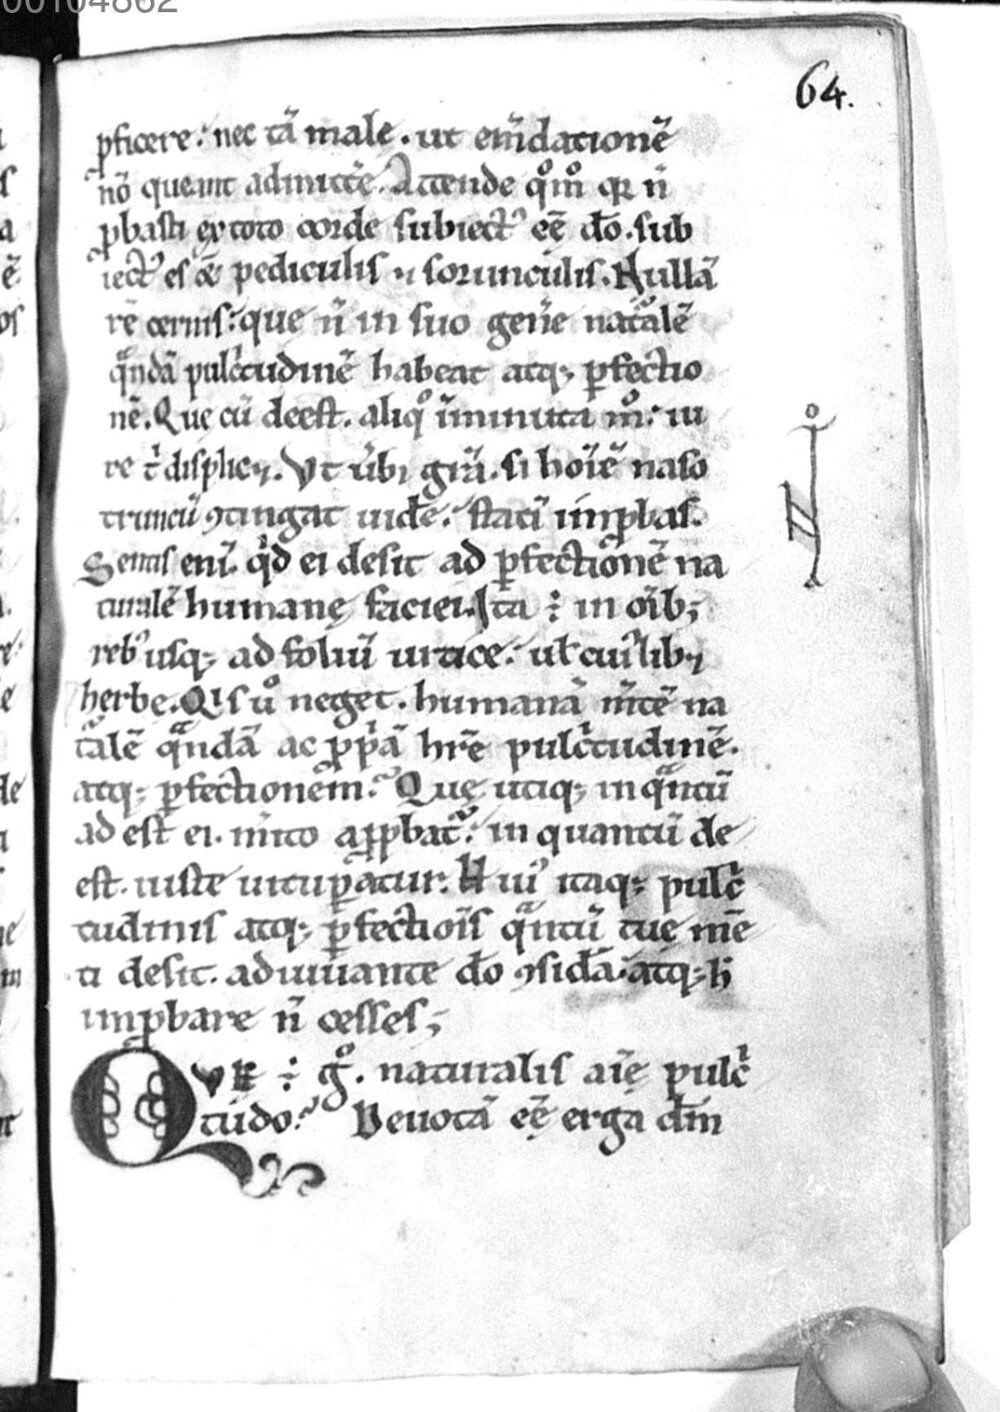 00104862
64.
ꝓficere: nec tā male. ut em̄dationē
nō queant admittēe. Attende qͦm̊ qꝛ n̄
ꝓbasti ex toto corde subiectꝰ eē dō. sub
iectꝰ es & pediculis ⁊ sorunculis. Nullā
rē cernis: que n̄ in suo geñe natᵃalē
qᵃndā pulcͥtudinē habeat atq; ꝑfectio
nē. Quę cū deest. aliqͦ īminuta mͦ: iu
re t̄ displicet. Vt ūbi grā. si hoīē naso
truncū ꝯtingat uidē: statī imꝓbas.
Sentis enī. qͥd ei desit ad ꝑfectionē na
turalē humanę faciei. Ita ÷ in oīb;
rebꝰ usq; ad foliū urtice: uł cuiꝰlibet
herbe. Qis uͦ neget. humanā m̄tē na
tᵃalē qᵃndā ac ꝓpͥā hr̄e pulcͥtudinē.
atq; ꝑfectionem? Quę utiq; in qᵃntū
adest ei. m̄ito apꝓbatꝰ: in quantū de
est. iuste uituꝑatur. Huiꝰ itaq; pulcͥ
tudinis atq; ꝑfectiōis qᵃntū tue mē
ti desit. adiuuante dō ꝯsidā. atq; h̄
imꝓbare n̄ cesses;
Quę ÷ gͦ. naturalis aīę pulcͥ
tudo? Deuotā eē erga dm̄